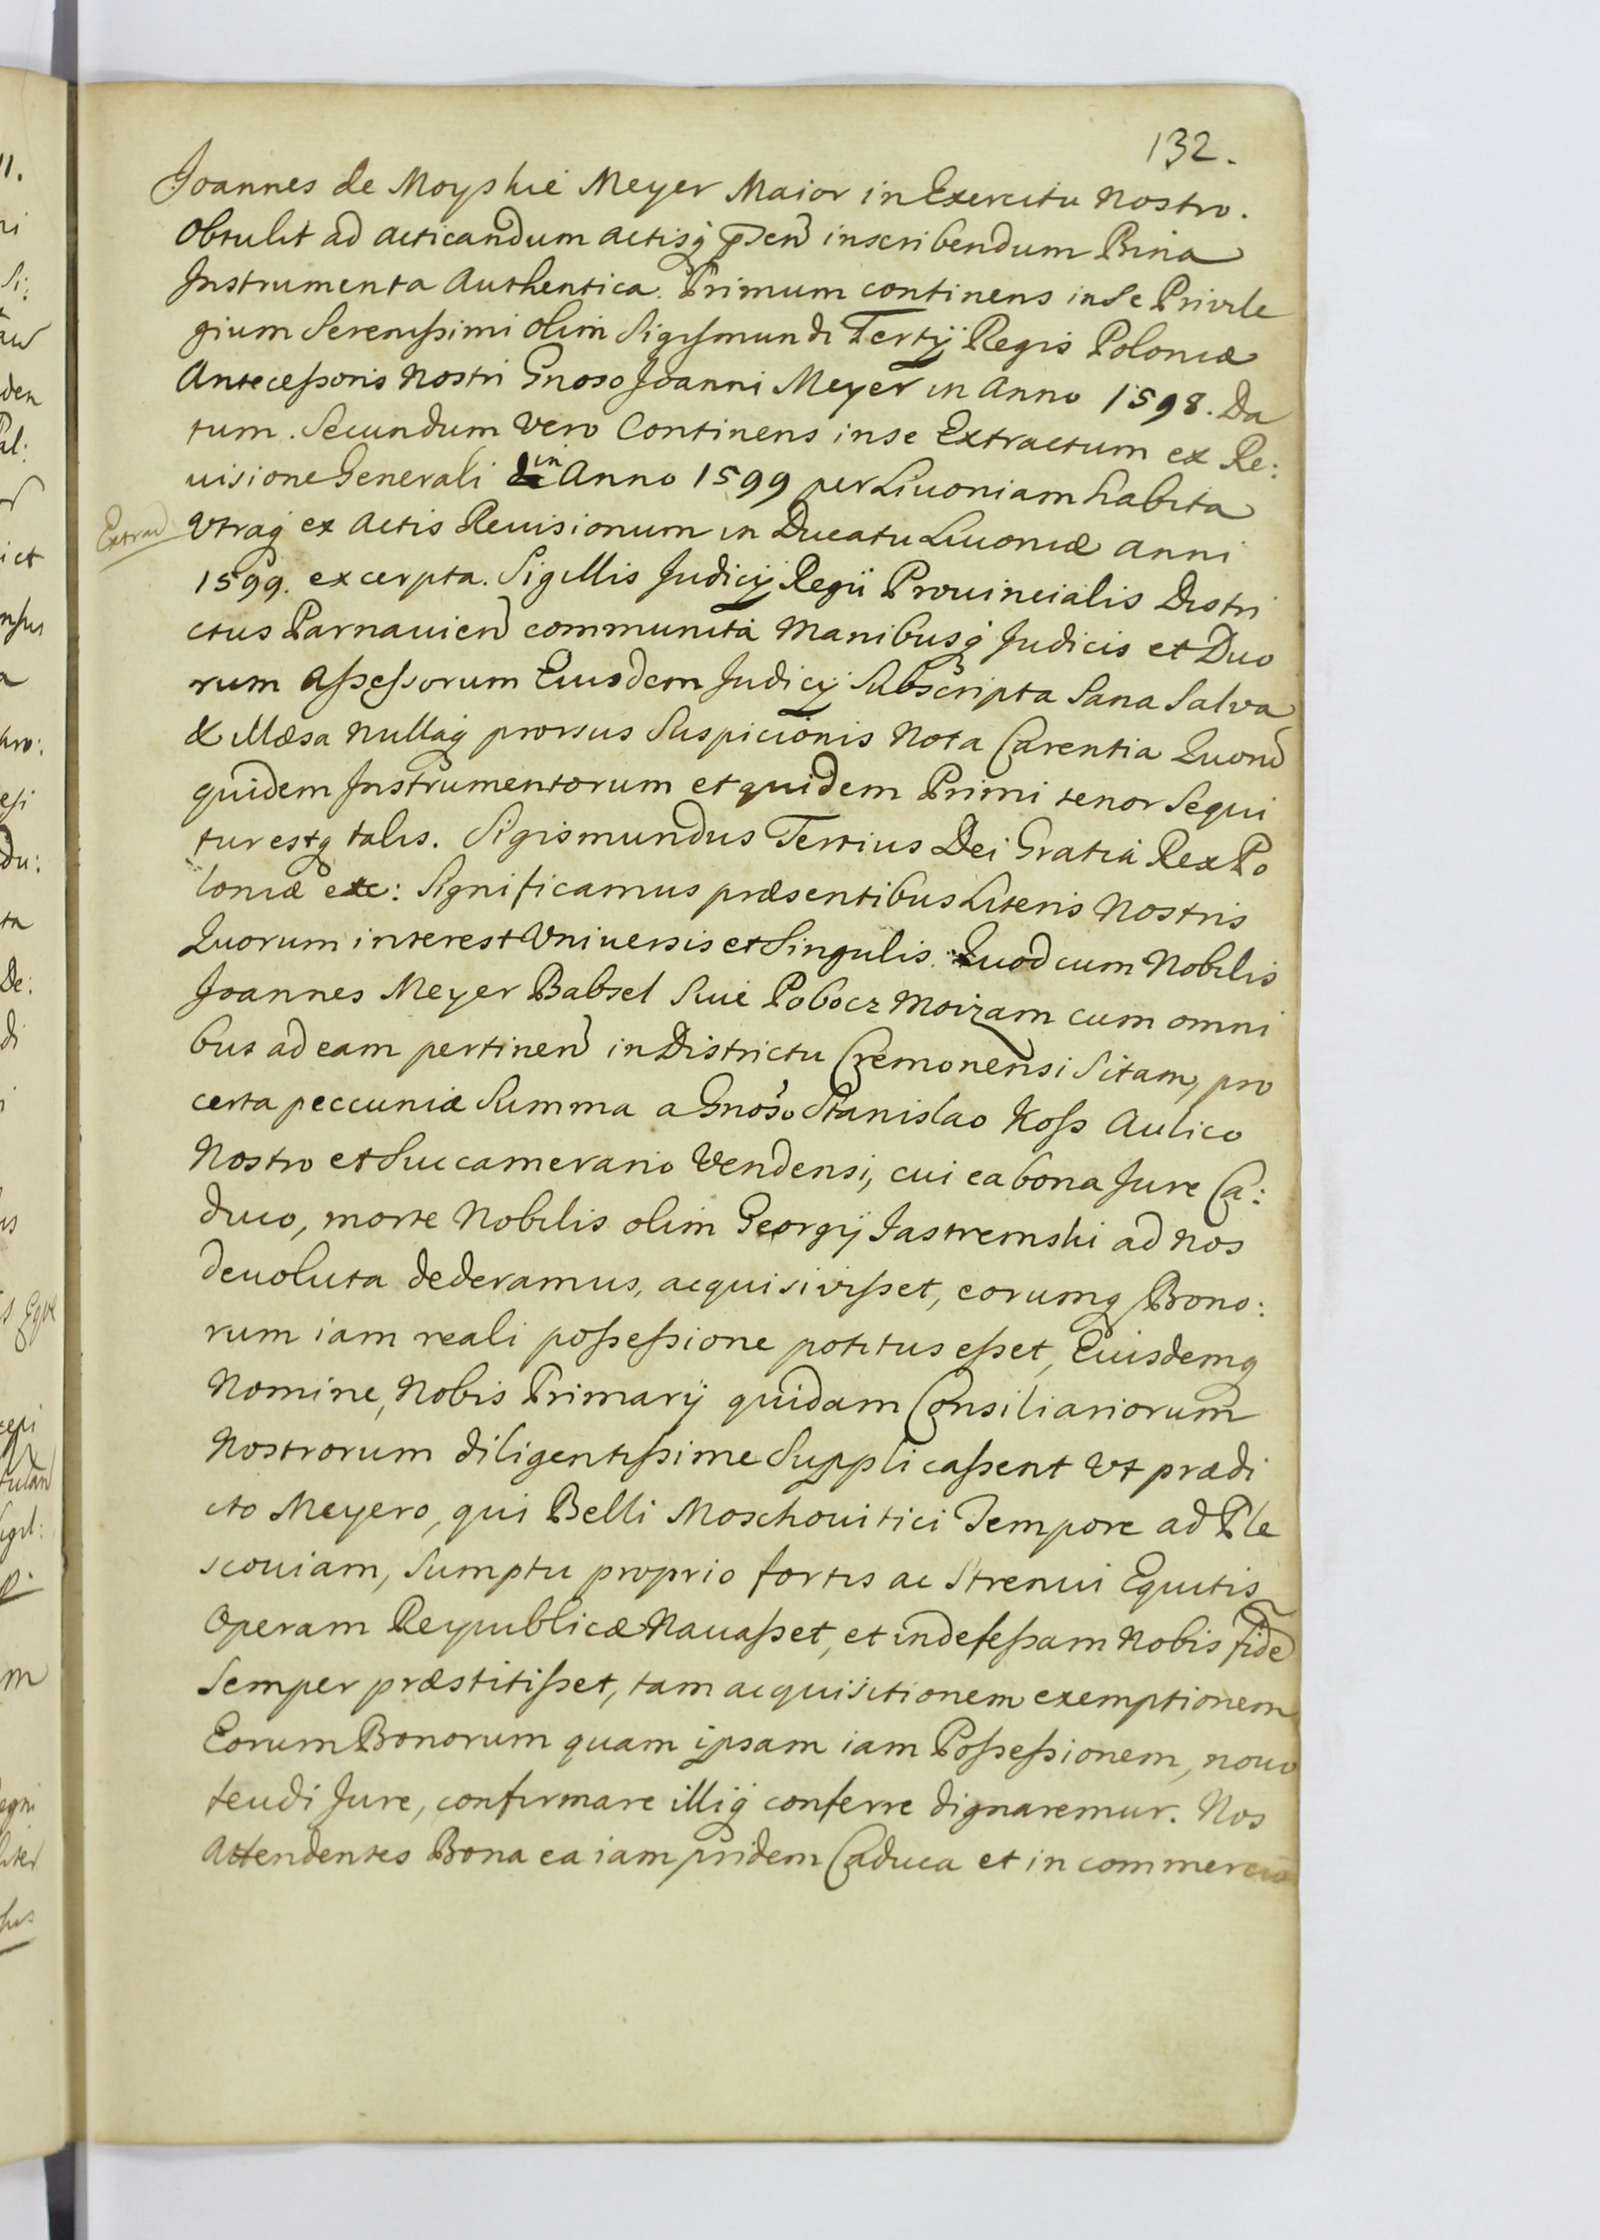 132.
Joannes de Moyskie Meyer Maior in Exercitu Nostro.
Obtulit ad acticandum actisq̢ p̄sen̄ inscribendum Bina
Instrumenta Authentica. Primum continens in Se Privile
gium Serenissimi olim Sigismundi Tertij Regis Poloniæ
Antecessoris Nostri Gnoso Joanni Meyer in Anno 1598. Da
tum. Secundum Vero Continens in se Extractum ex Re:
uisione Generali in Anno 1599 per Liuoniam habita
Extrad
Vtraq̢ ex Actis Reuisionum in Ducatu Liuoniæ anni
1599. excerpta. Sigillis Judicij Regii Prouincialis Distri
ctus Parnauien̄ communita Manibusq̢ Judicis et Duo
rum Assessorum Eiusdem Judicij Subscripta Sana Salva
& illæsa Nullaq̢ prorsus Suspicionis Nota Carentia Quorū
quidem Instrumentorum et quidem Primi tenor Sequi
tur estq̢ talis. Sigismundus Tertius Dei Gratia Rex Po
loniæ etc: Significamus præsentibus Literis Nostris
Quorum interest Vniuersis et Singulis. Quod cum Nobilis
Joannes Meyer Babsel Siue Pobocz Moizam cum omni
bus ad eam pertinen̄ in Districtu Cremonensi Sitam, pro
certa pecuniæ Summa a Gnoso Stanislao Koss Aulico
Nostro et Succamerario Vendensi, cui ea bona Jure Ca:
duco, morte Nobilis olim Georgij Jastremski ad nos
deuoluta dederamus, acquisivisset, eorumq̢ Bono:
rum iam reali possessione potitus esset, Eiusdemq̢
Nomine, Nobis Primarij quidam Consiliariorum
Nostrorum diligentissime Supplicassent Vt prædi
cto Meyero, qui Belli Moschouitici Tempore ad Ple
scouiam, Sumptu proprio fortis ac Strenui Equitis
Operam Reipublicæ Nauasset, et indefessam Nobis fidē
Semper præstitisset, tam acquisitionem exemptionem
Eorum Bonorum quam ipsam iam Possessionem, nouo
feudi Jure, confirmare illiq̢ conferre dignaremur. Nos
Attendentes Bona ea iampridem Caduca et in commercio